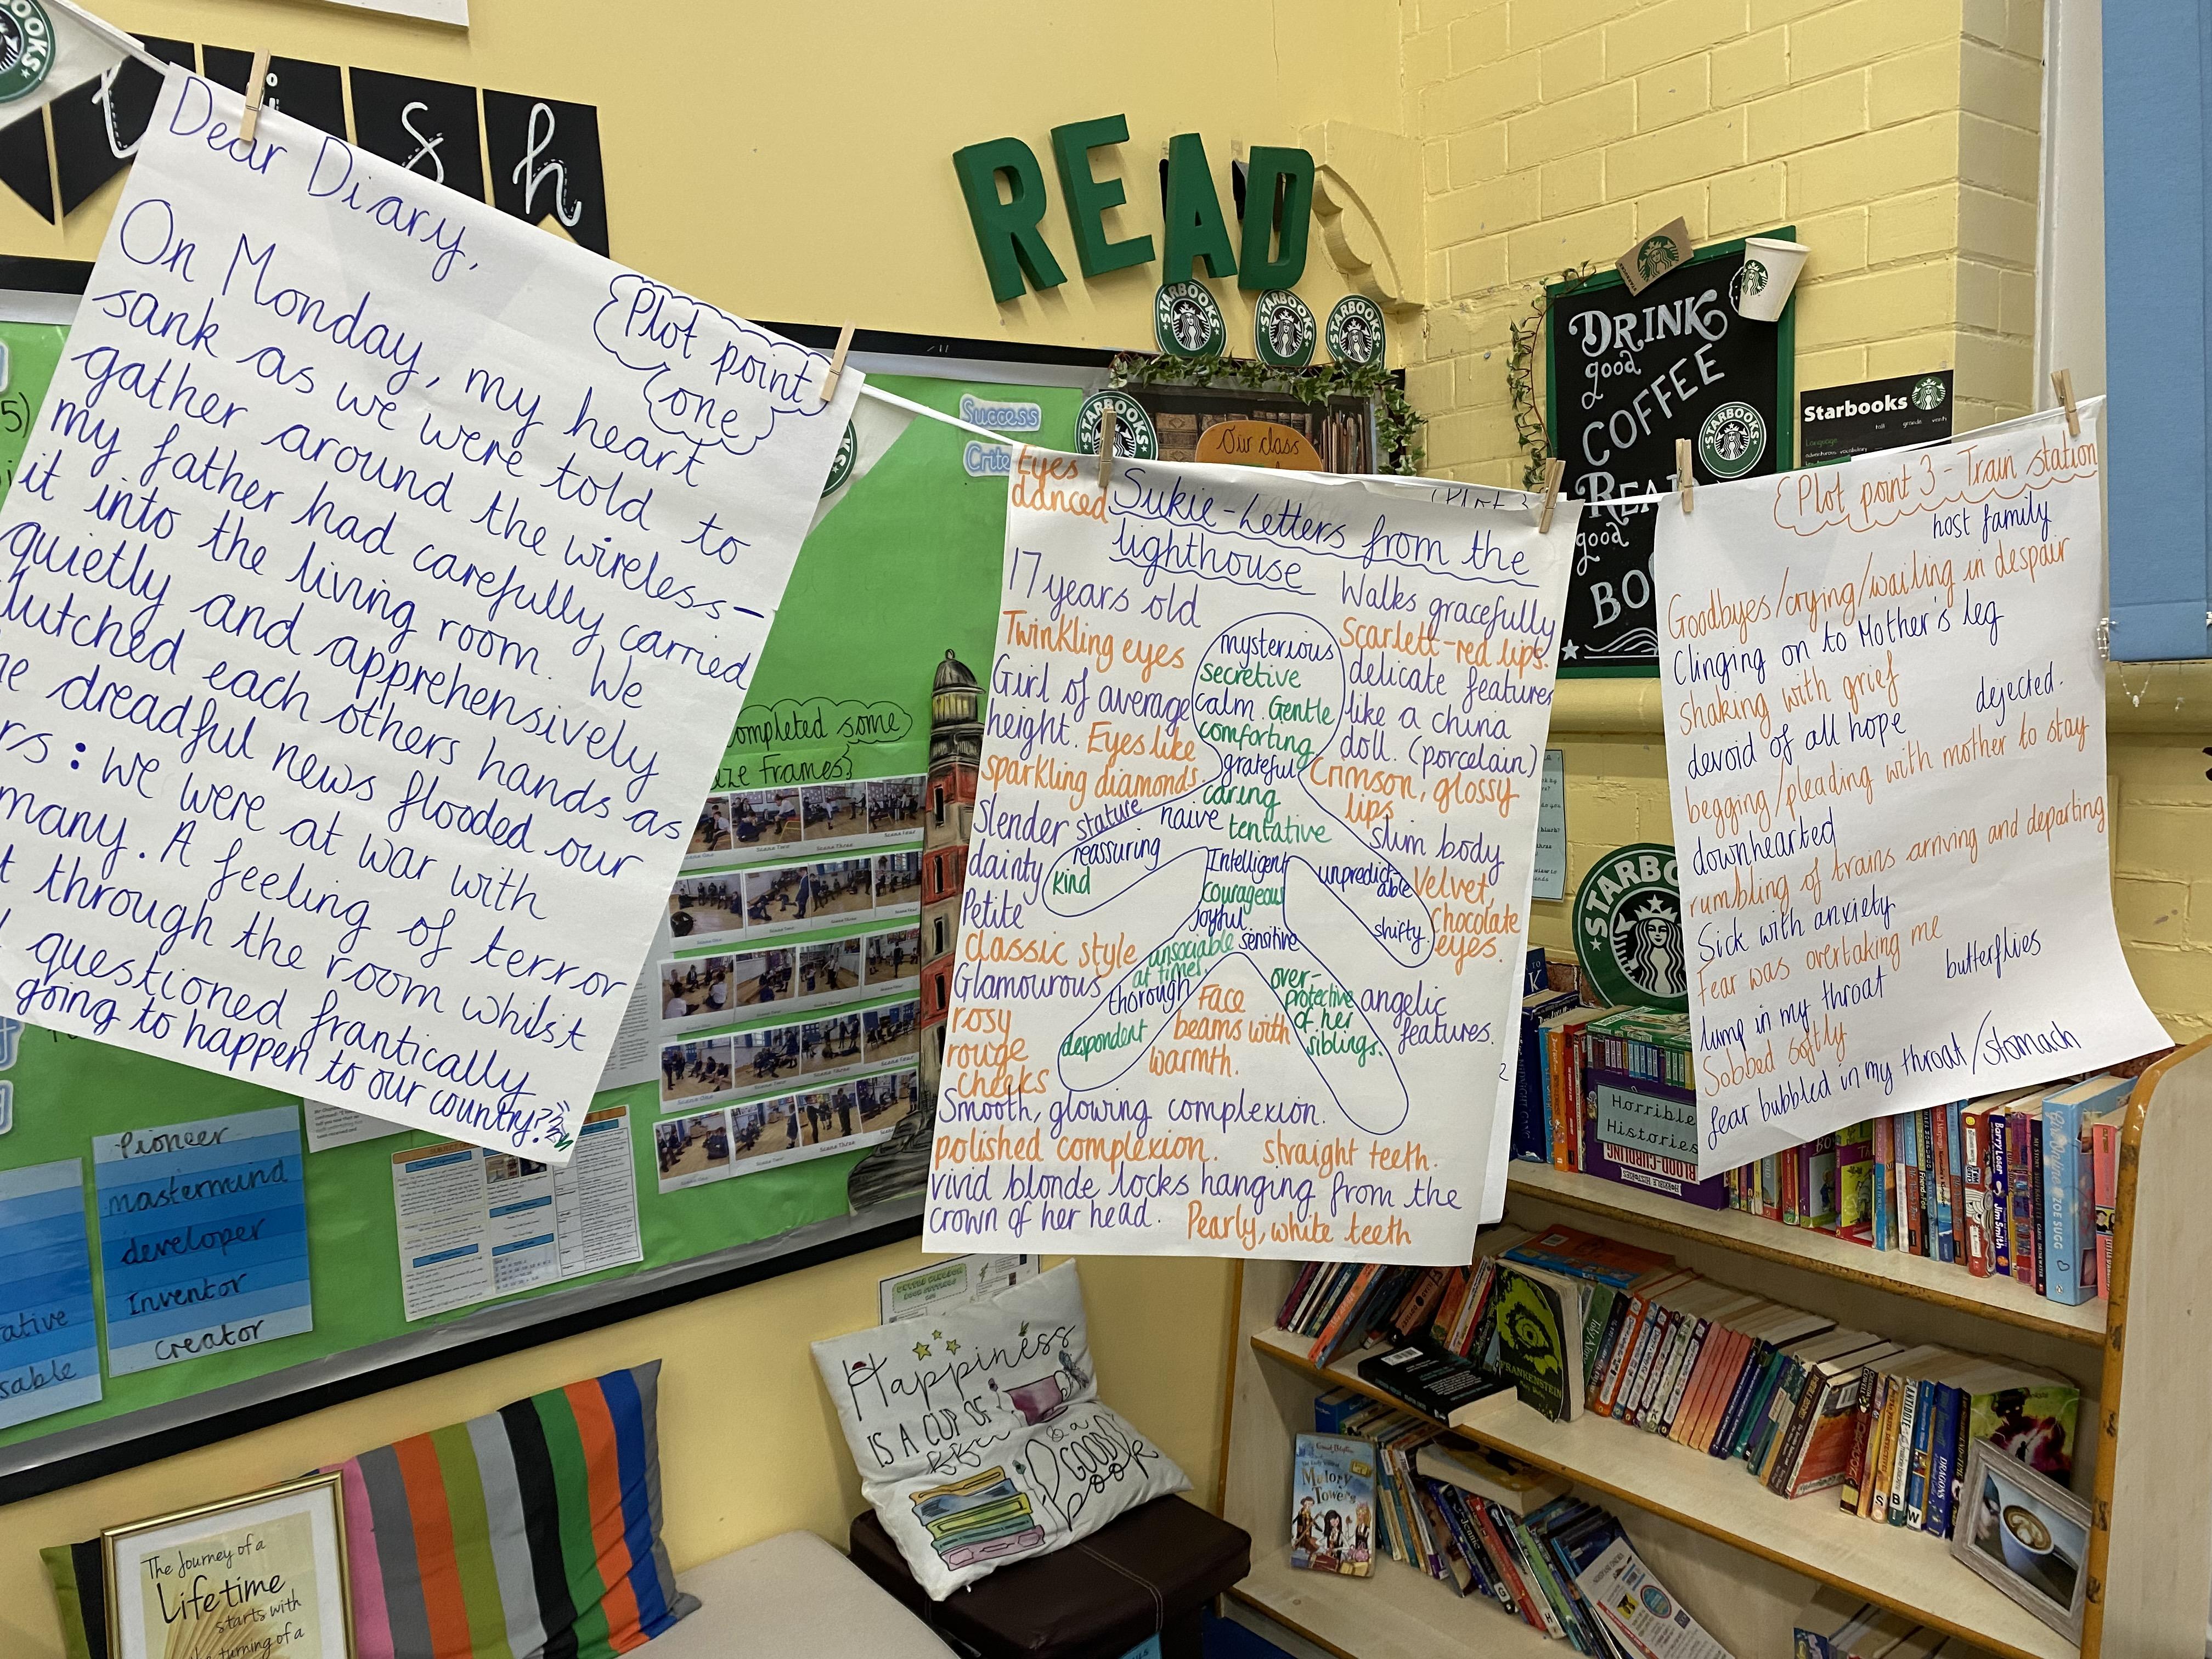 Dear Diary,
Plot point
one
On Monday, my heart
sank as we were told to
gather around the wireless-
my father had carefully carried
it into the living room. We
quietly and apprehensively
clutched each others hands as
dreadful news flooded our
: we were at war with
many. A feeling of terror
through the room whilst
questioned frantically
going to happen to our country?
ish
READ
STARBOOKS
STARBOOKS
STARBOOKS
Success
Our class
DRINK
good
COFFEE
READ
good
BO
Starbooks
Eyes
danced
Sukie-Letters from the
lighthouse
17 years old
Walks gracefully
Twinkling eyes
Scarlett-red lips.
Girl of average
height.
delicate features
like a china
doll. (porcelain)
Eyes like
sparkling diamonds.
Crimson, glossy
lips
Slender stature
slim body
dainty
Petite
Velvet,
Chocolate
eyes.
classic style
Glamourous
angelic
features.
rosy
rouge
cheeks
mysterious
secretive
calm. Gentle
comforting
grateful
caring
naive tentative
reassuring
kind
Intelligent
Courageous
Joyful
unpredict-
able
shifty
unsociable
at times.
sensitive
thorough
despondent
over-
protective
of her
siblings.
Face
beams with
warmth.
Smooth, glowing complexion.
polished complexion. straight teeth.
vivid blonde locks hanging from the
crown of her head. Pearly, white teeth
Plot point 3 - Train station
host family
Goodbyes/crying/wailing in despair
Clinging on to Mother's leg
Shaking with grief
devoid of all hope dejected.
begging/pleading with mother to stay
downhearted
rumbling of trains arriving and departing
Sick with anxiety
Fear was overtaking me
lump in my throat butterflies
Sobbed softly
fear bubbled in my throat/stomach
completed some
Frames
Pioneer
mastermind
developer
Inventor
creator
Happiness
IS A CUP OF
a
GOOD
book
The Journey of a
Lifetime
starts with
turning of a
STARBO
Horrible
Histories
BLOOD-CURDLING
FRANKENSTEIN
Enid Blyton
Malory
Towers
ZOE SUGG
Barry Loser
Jim Smith
DRAGONS